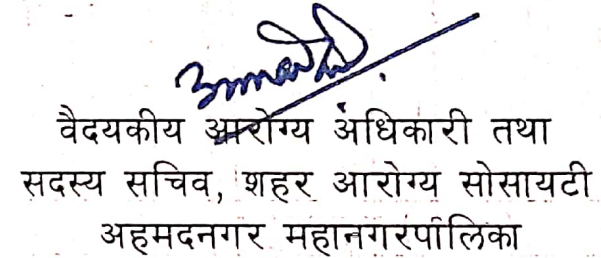 वैदयकीय आरोग्य अधिकारी तथा
सदस्य सचिव, शहर आरोग्य सोसायटी
अहमदनगर महानगरपालिका